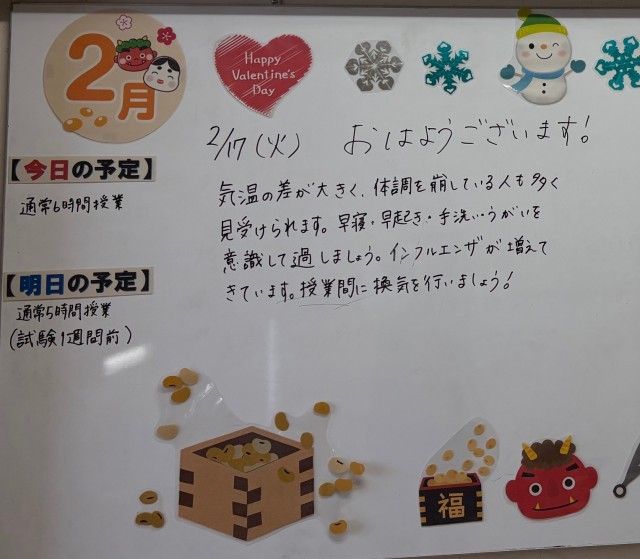 2月
Happy
Valentine's
Day
2/17(火) おはようございます!
【今日の予定】
通常6時間授業
気温の差が大きく、体調を崩している人も多く
見受けられます。早寝・早起き・手洗い・うがいを
意識して過しましょう。インフルエンザが増えて
きています。授業間に換気を行いましょう!
【明日の予定】
通常5時間授業
(試験1週間前)
福